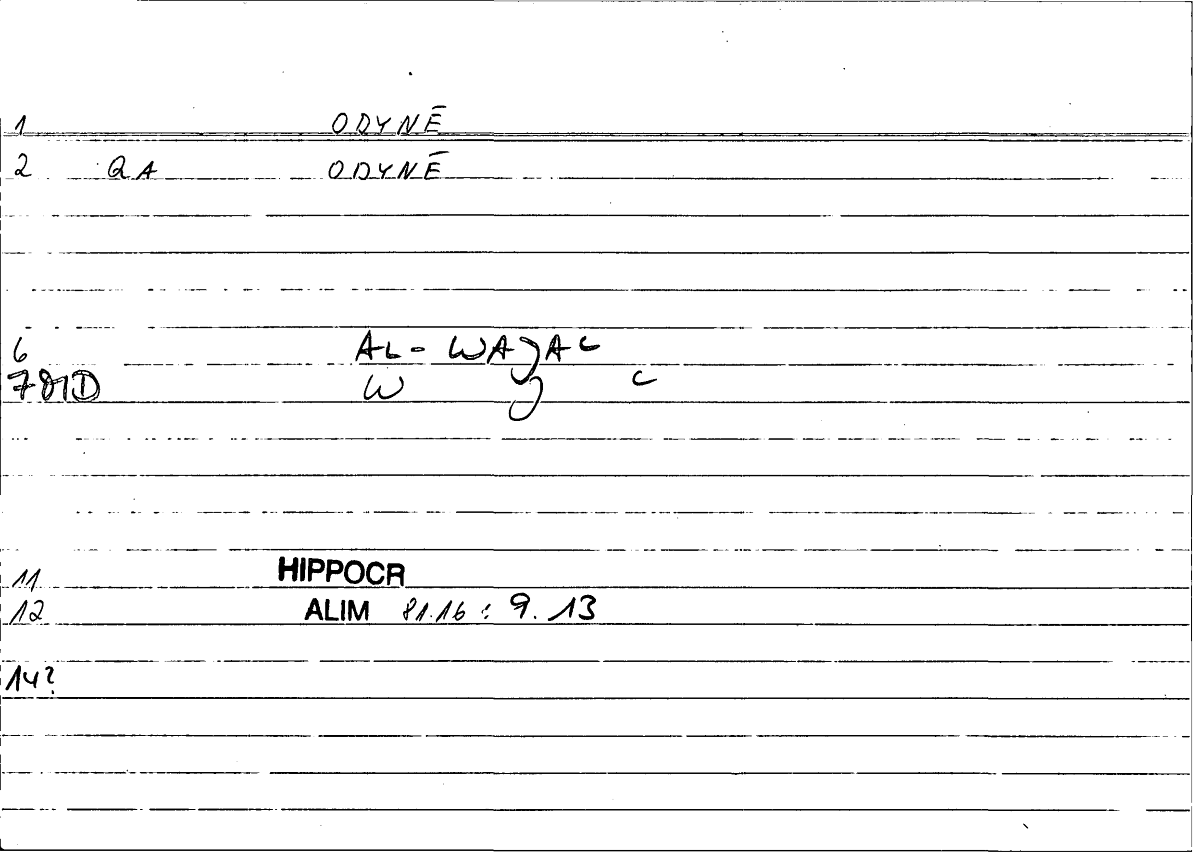 1 ODYNĒ
2 QA ODYNĒ
6 AL-WAJAC
W J C
11 HIPPOCR
12 ALIM 81.16 : 9.13
14?